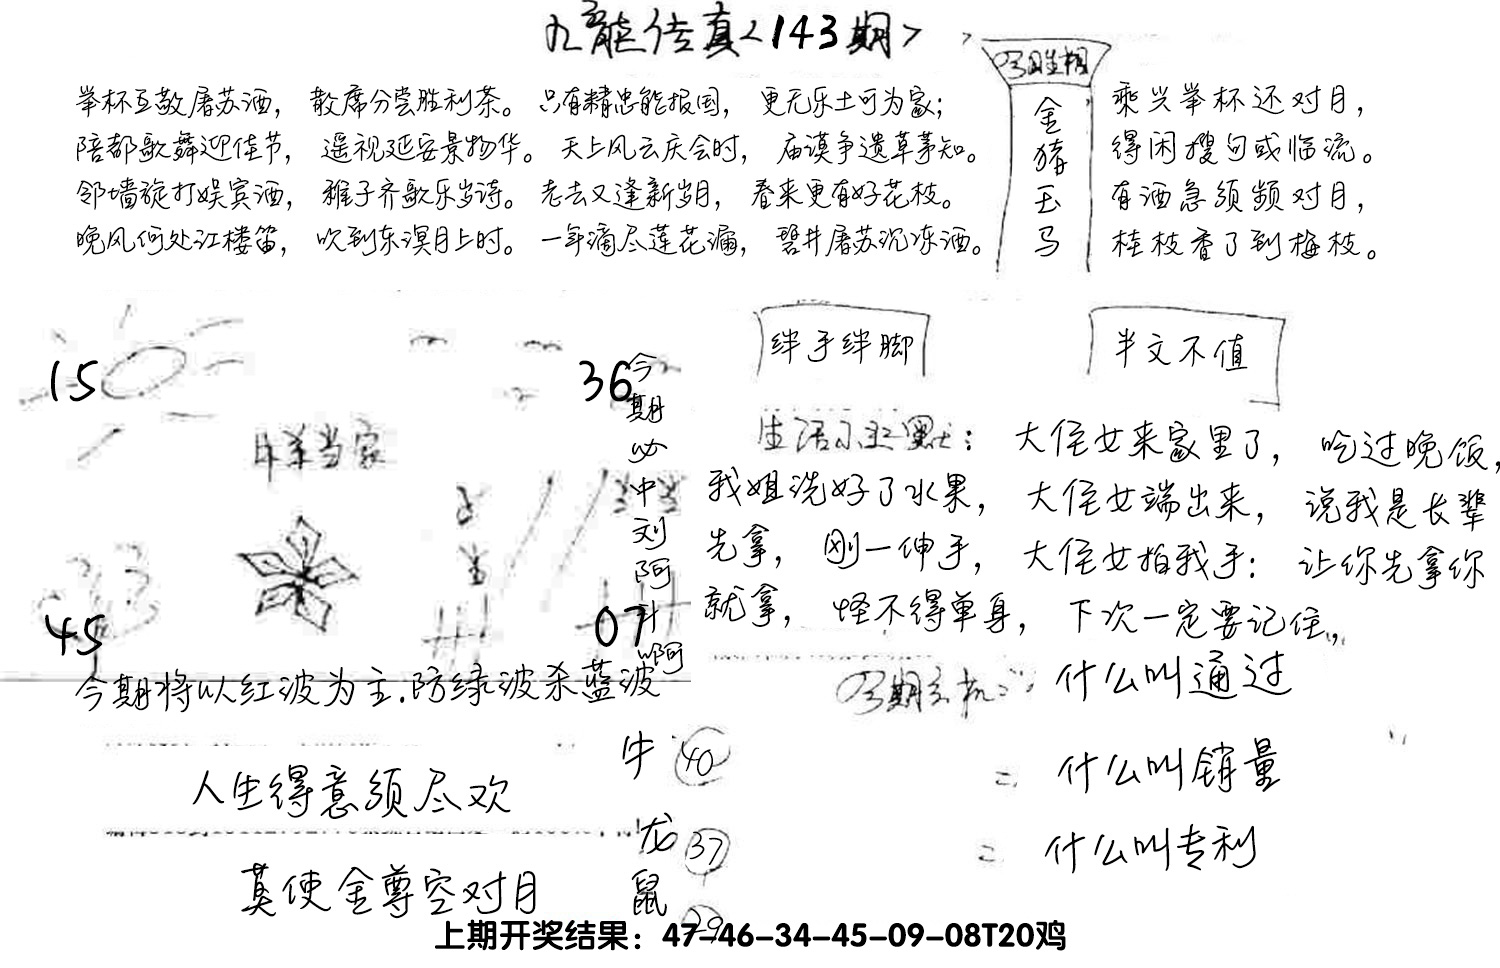 九龍传真<143期>
举杯互敬屠苏酒，散席分尝胜利茶。只有精忠能报国，更无乐土可为家；
陪都歌舞迎佳节，遥视延安景物华。天上风云庆会时，庙谟争遗草茅知。
邻墙旋打娱宾酒，稚子齐歌乐岁诗。老去又逢新岁月，春来更有好花枝。
晚风何处江楼笛，吹到东溟月上时。一年滴尽莲花漏，碧井屠苏沉冻酒。
金
猪
玉
马
乘兴举杯还对月，
得闲搜句或临流。
有酒急须频对月，
桂枝香了到梅枝。
15
36
45
07
今期必中刘阿斗啊
今期将以红波为主.防绿波杀蓝波
绊手绊脚
半文不值
大侄女来家里了，吃过晚饭，
我姐洗好了水果，大侄女端出来，说我是长辈
先拿，刚一伸手，大侄女拍我手：让你先拿你
就拿，怪不得单身，下次一定要记住，
什么叫通过
什么叫销量
什么叫专利
人生得意须尽欢
莫使金尊空对月
牛 40
龙 37
鼠 29
上期开奖结果：47-46-34-45-09-08T20鸡